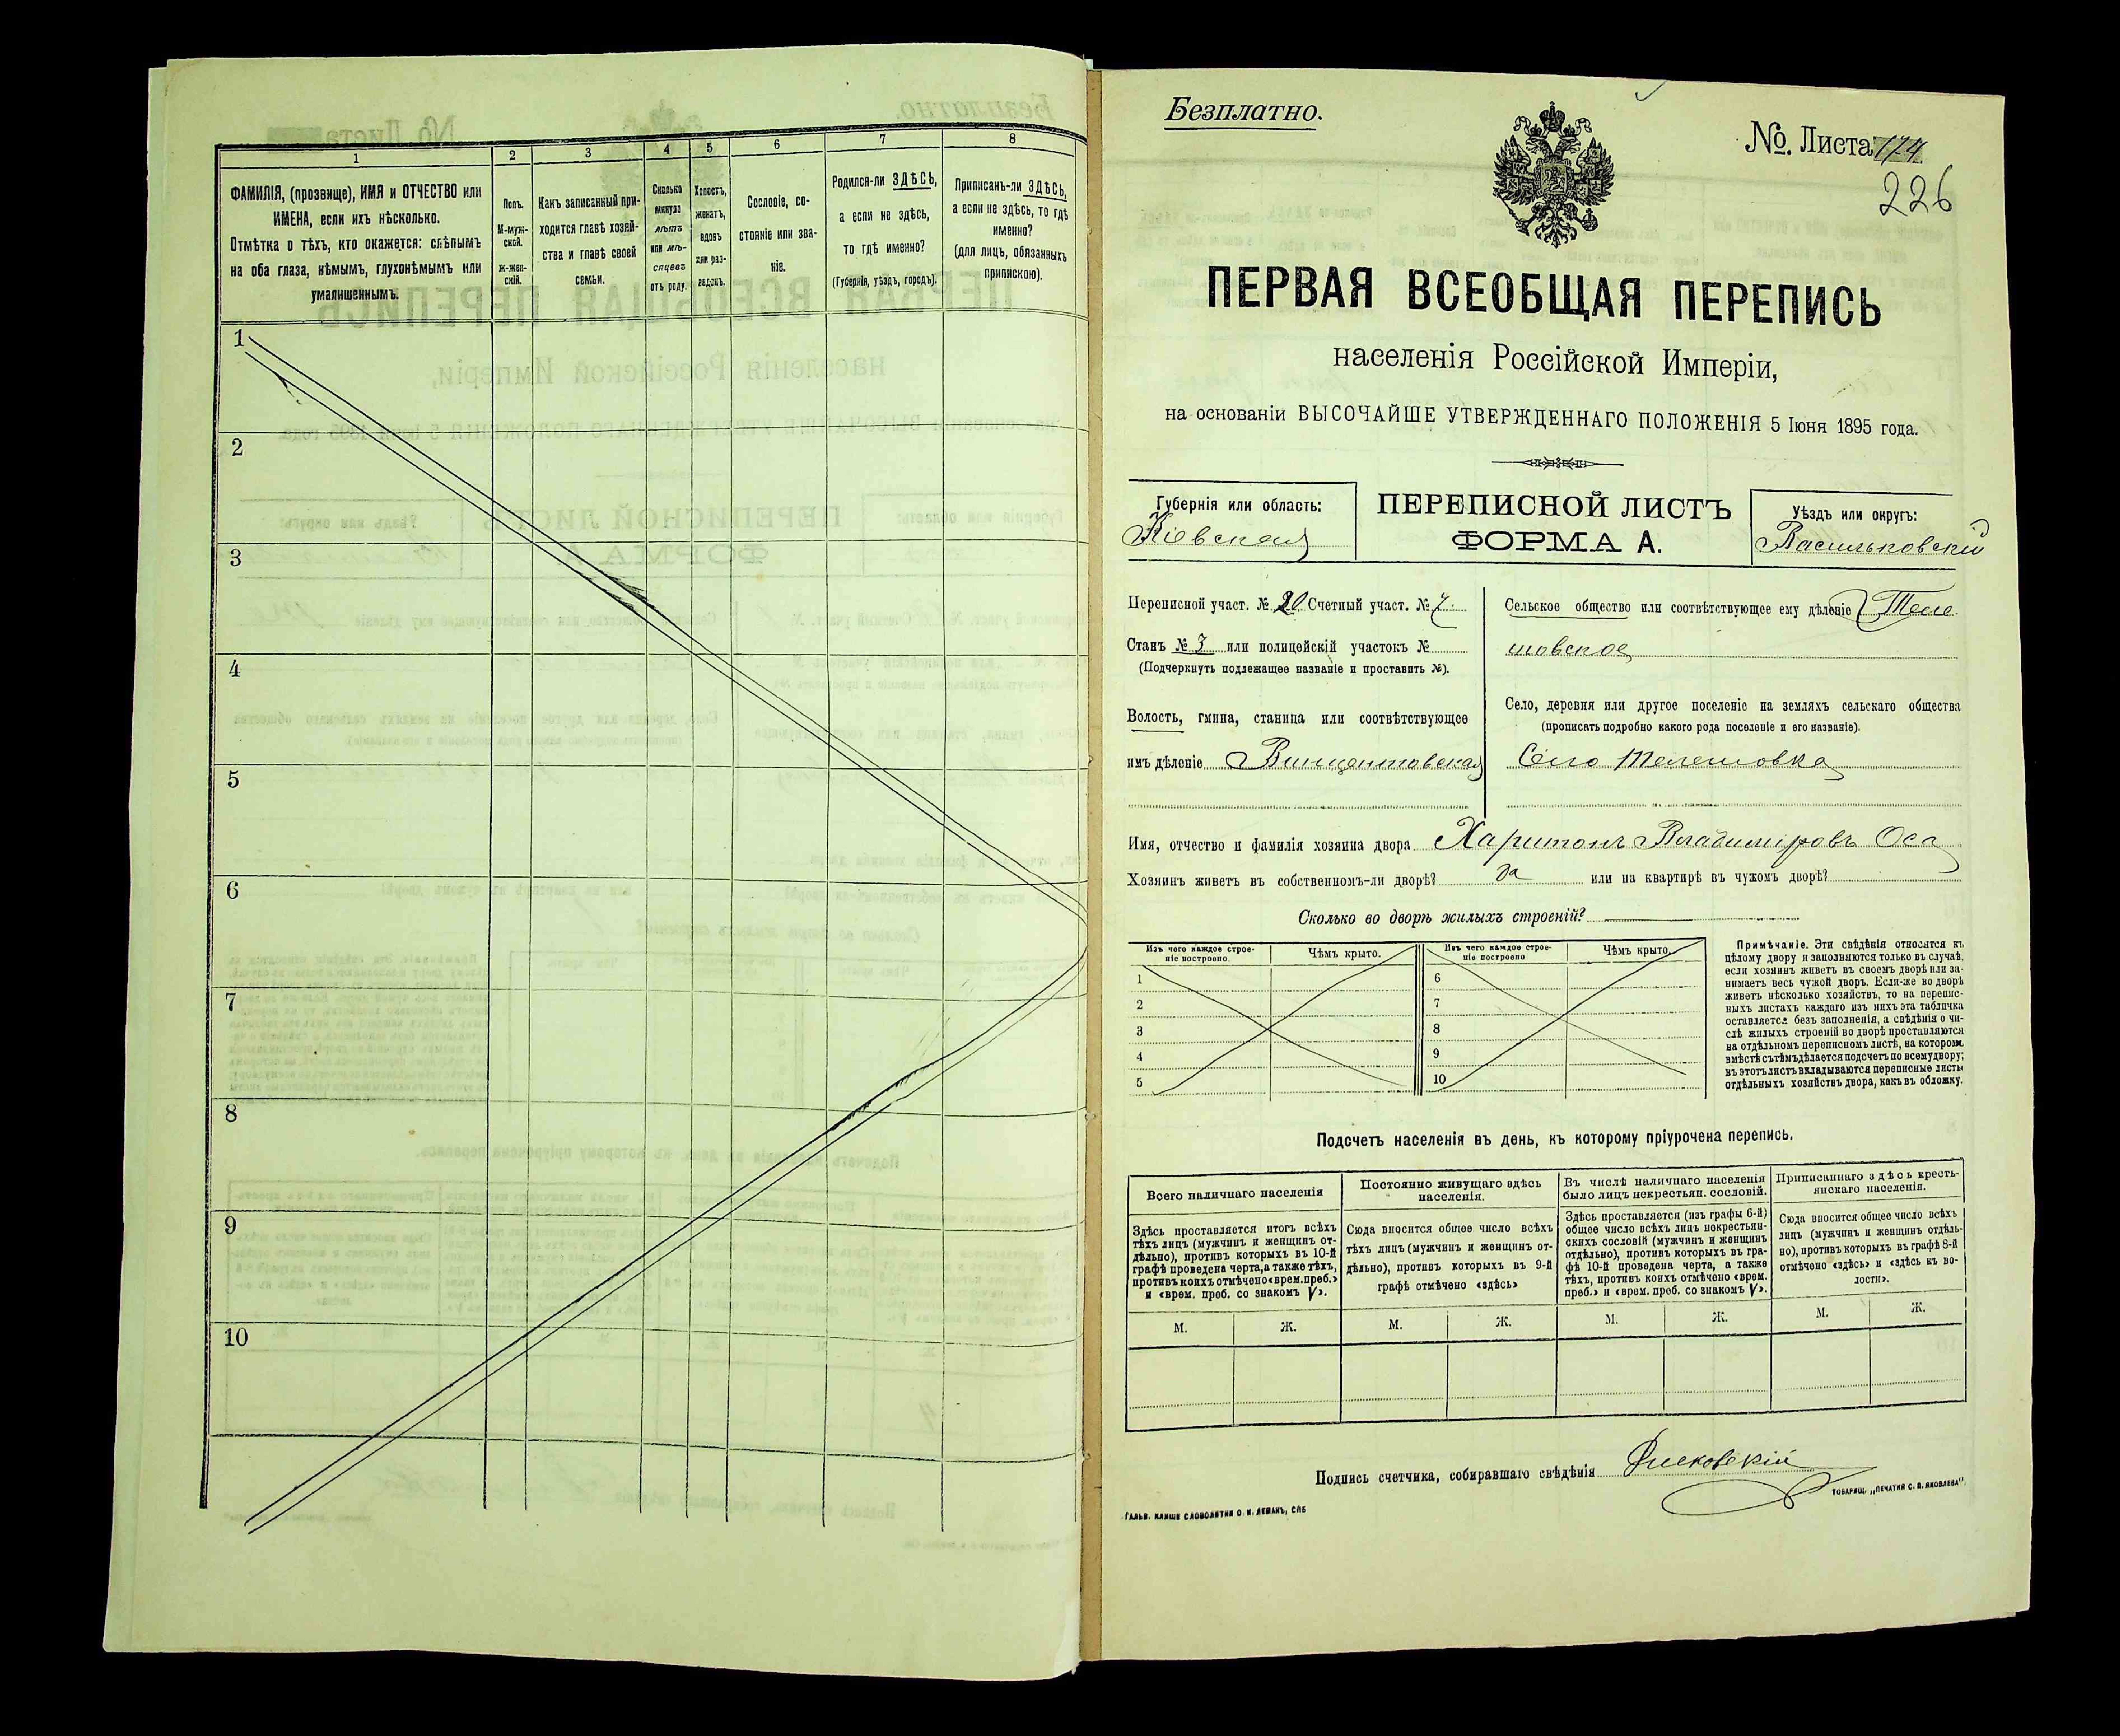 1 2 3 4 5 6 7 8
ФАМИЛІЯ, (прозвище), ИМЯ и ОТЧЕСТВО или
ИМЕНА, если ихъ нѣсколько.
Отмѣтка о тѣхъ, кто окажется: слѣпымъ
на оба глаза, нѣмымъ, глухонѣмымъ или
умалишеннымъ.
Полъ.
М-муж-
ской.
ж-жен-
скій.
Какъ записанный при-
ходится главѣ хозяй-
ства и главѣ своей
семьи.
Сколько
минуло
лѣтъ
или мѣ-
сяцевъ
отъ роду.
Холостъ,
женатъ,
вдовъ
или раз-
веденъ.
Сословіе, со-
стояніе или зва-
ніе.
Родился-ли ЗДѢСЬ,
а если не здѣсь,
то гдѣ именно?
(Губернія, уѣздъ, городъ).
Приписанъ-ли ЗДѢСЬ,
а если не здѣсь, то гдѣ
именно?
(для лицъ, обязанныхъ
припискою).
1
2
3
4
5
6
7
8
9
10
Безплатно.
№. Листа 174
226
ПЕРВАЯ ВСЕОБЩАЯ ПЕРЕПИСЬ
населенія Россійской Имперіи,
на основаніи ВЫСОЧАЙШЕ УТВЕРЖДЕННАГО ПОЛОЖЕНІЯ 5 Іюня 1895 года.
Губернія или область:
Кіевская
ПЕРЕПИСНОЙ ЛИСТЪ
ФОРМА А.
Уѣздъ или округъ:
Васильковскій
Переписной участ. № 20 Счетный участ. № 7
Станъ № 3 или полицейскій участокъ №
(Подчеркнуть подлежащее названіе и проставить №).
Волость, гмина, станица или соотвѣтствующее
имъ дѣленіе Винцентовская
Сельское общество или соотвѣтствующее ему дѣленіе Теле
шовское
Село, деревня или другое поселеніе на земляхъ сельскаго общества
(прописать подробно какого рода поселеніе и его названіе).
Село Телешовка
Имя, отчество и фамилія хозяина двора Харитонъ Владиміровъ Оса
Хозяинъ живетъ въ собственномъ-ли дворѣ? да или на квартирѣ въ чужомъ дворѣ?
Сколько во дворѣ жилыхъ строеній?
Изъ чего каждое строе-
ніе построено.
Чѣмъ крыто.
Изъ чего каждое строе-
ніе построено
Чѣмъ крыто.
1 6
2 7
3 8
4 9
5 10
Примѣчаніе. Эти свѣдѣнія относятся къ
цѣлому двору и заполняются только въ случаѣ,
если хозяинъ живетъ въ своемъ дворѣ или за-
нимаетъ весь чужой дворъ. Если-же во дворѣ
живетъ нѣсколько хозяйствъ, то на перепис-
ныхъ листахъ каждаго изъ нихъ эта табличка
оставляется безъ заполненія, а свѣдѣнія о чи-
слѣ жилыхъ строеній во дворѣ проставляются
на отдѣльномъ переписномъ листѣ, на которомъ
вмѣстѣ съ тѣмъ дѣлается подсчетъ по всему двору;
въ этотъ листъ вкладываются переписные листы
отдѣльныхъ хозяйствъ двора, какъ въ обложку.
Подсчетъ населенія въ день, къ которому пріурочена перепись.
Всего наличнаго населенія
Здѣсь проставляется итогъ всѣхъ
тѣхъ лицъ (мужчинъ и женщинъ от-
дѣльно), противъ которыхъ въ 10-й
графѣ проведена черта, а также тѣхъ,
противъ коихъ отмѣчено «врем. преб.»
и «врем. преб. со знакомъ V».
Постоянно живущаго здѣсь
населенія.
Сюда вносится общее число всѣхъ
тѣхъ лицъ (мужчинъ и женщинъ от-
дѣльно), противъ которыхъ въ 9-й
графѣ отмѣчено «здѣсь»
Въ числѣ наличнаго населенія
было лицъ некрестьян. сословій.
Здѣсь проставляется (изъ графы 6-й)
общее число всѣхъ лицъ некрестьян-
скихъ сословій (мужчинъ и женщинъ
отдѣльно), противъ которыхъ въ гра-
фѣ 10-й проведена черта, а также
тѣхъ, противъ коихъ отмѣчено «врем.
преб.» и «врем. преб. со знакомъ V».
Приписаннаго здѣсь кресть-
янскаго населенія.
Сюда вносится общее число всѣхъ
лицъ (мужчинъ и женщинъ отдѣль-
но), противъ которыхъ въ графѣ 8-й
отмѣчено «здѣсь» и «здѣсь къ во-
лости».
М. Ж. М. Ж. М. Ж. М. Ж.
Подпись счетчика, собиравшаго свѣдѣнія
ГАЛЬВ. КЛИШЕ СЛОВОЛИТНИ О. И. ЛЕМАНЪ, СПБ
ТОВАРИЩ. „ПЕЧАТНЯ С. П. ЯКОВЛЕВА".